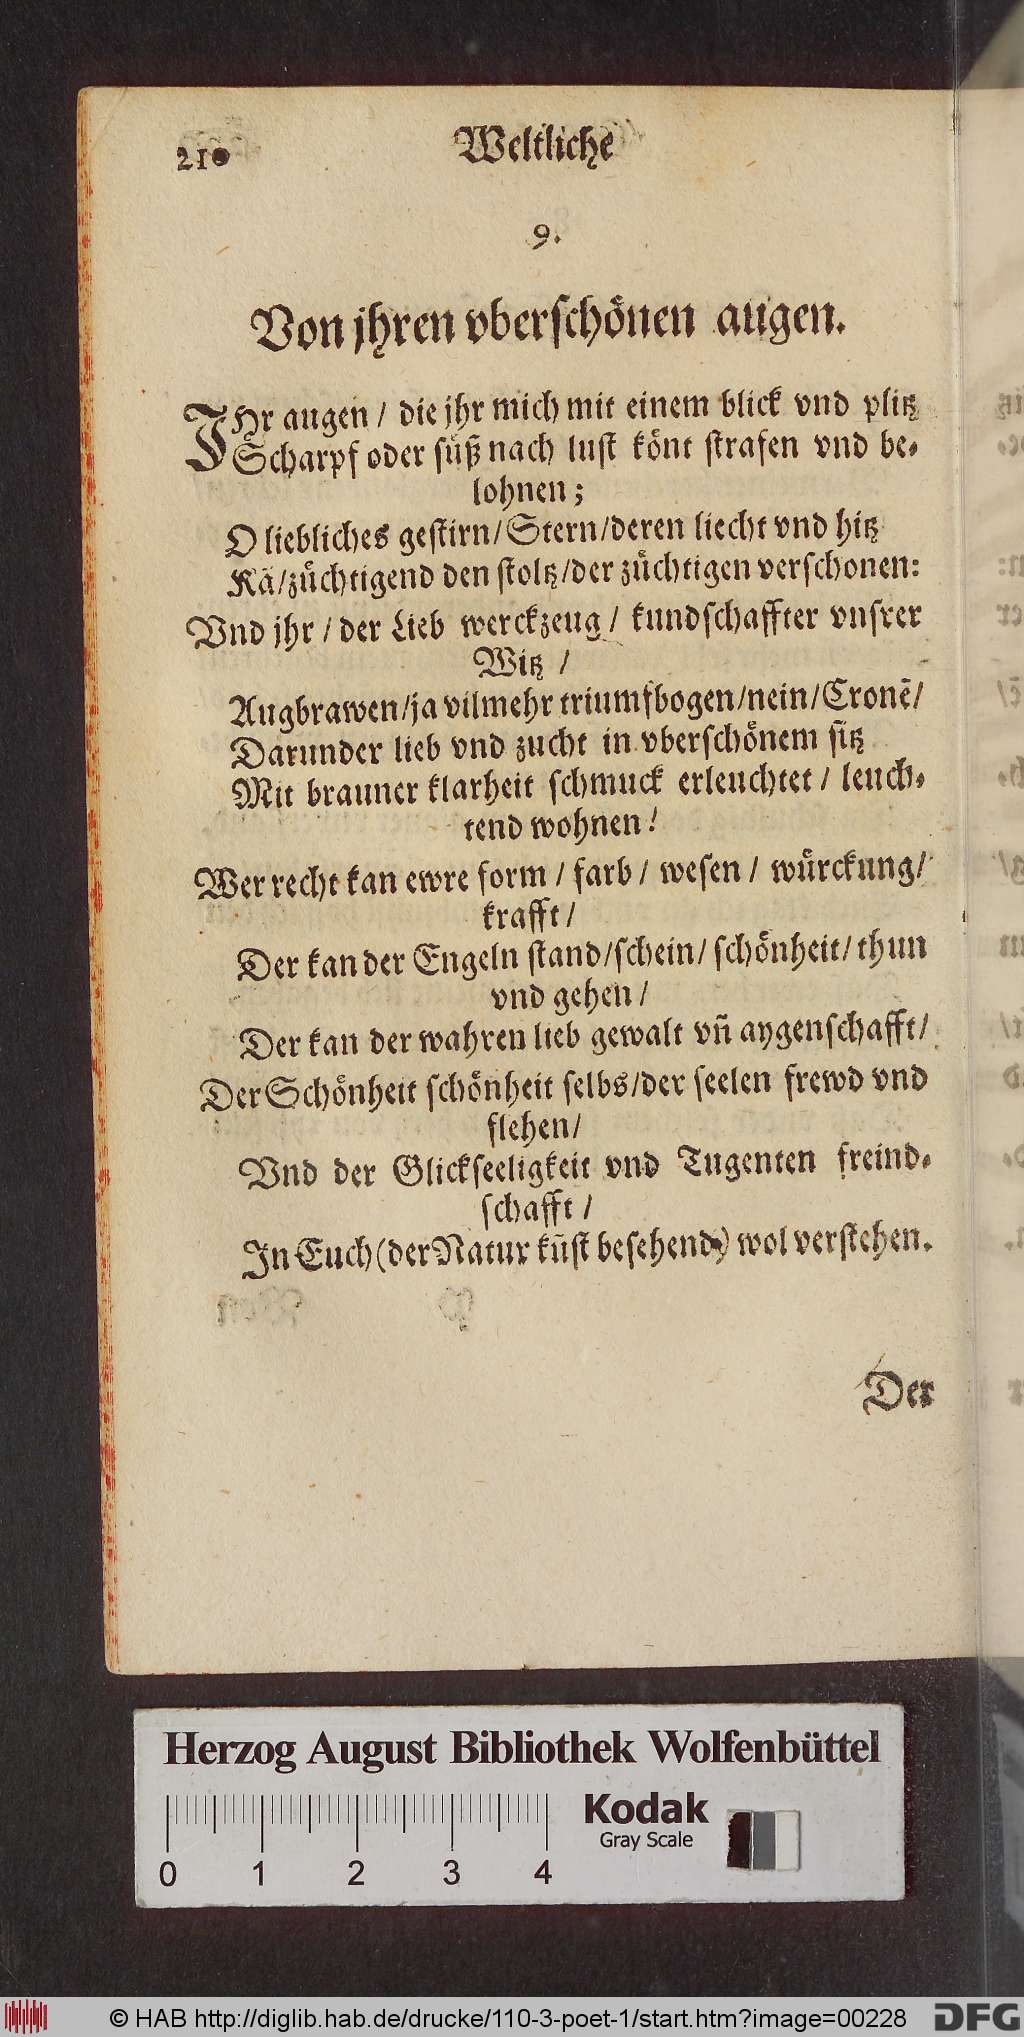 210 Weltliche
9.
Von jhren vberschönen augen.
IHr augen / die jhr mich mit einem blick vnd plitz
Scharpf oder süß nach lust könt strafen vnd be-
lohnen ;
O liebliches gestirn/ Stern/ deren liecht vnd hitz
Kã/ züchtigend den stoltz/ der züchtigen verschonen:
Vnd jhr / der Lieb werckzeug / kundschaffter vnsrer
Witz /
Augbrawen/ ja vilmehr triumfbogen/ nein/ Cronẽ/
Darunder lieb vnd zucht in vberschönem sitz
Mit brauner klarheit schmuck erleuchtet / leuch-
tend wohnen!
Wer recht kan ewre form / farb / wesen / würckung/
krafft /
Der kan der Engeln stand/ schein/ schönheit/ thun
vnd gehen /
Der kan der wahren lieb gewalt vñ aygenschafft/
Der Schönheit schönheit selbs/ der seelen frewd vnd
flehen/
Vnd der Glickseeligkeit vnd Tugenten freind-
schafft /
In Euch (der Natur kũst besehend) wol verstehen.
Der
Herzog August Bibliothek Wolfenbüttel
Kodak
Gray Scale
0 1 2 3 4
© HAB http://diglib.hab.de/drucke/110-3-poet-1/start.htm?image=00228
DFG